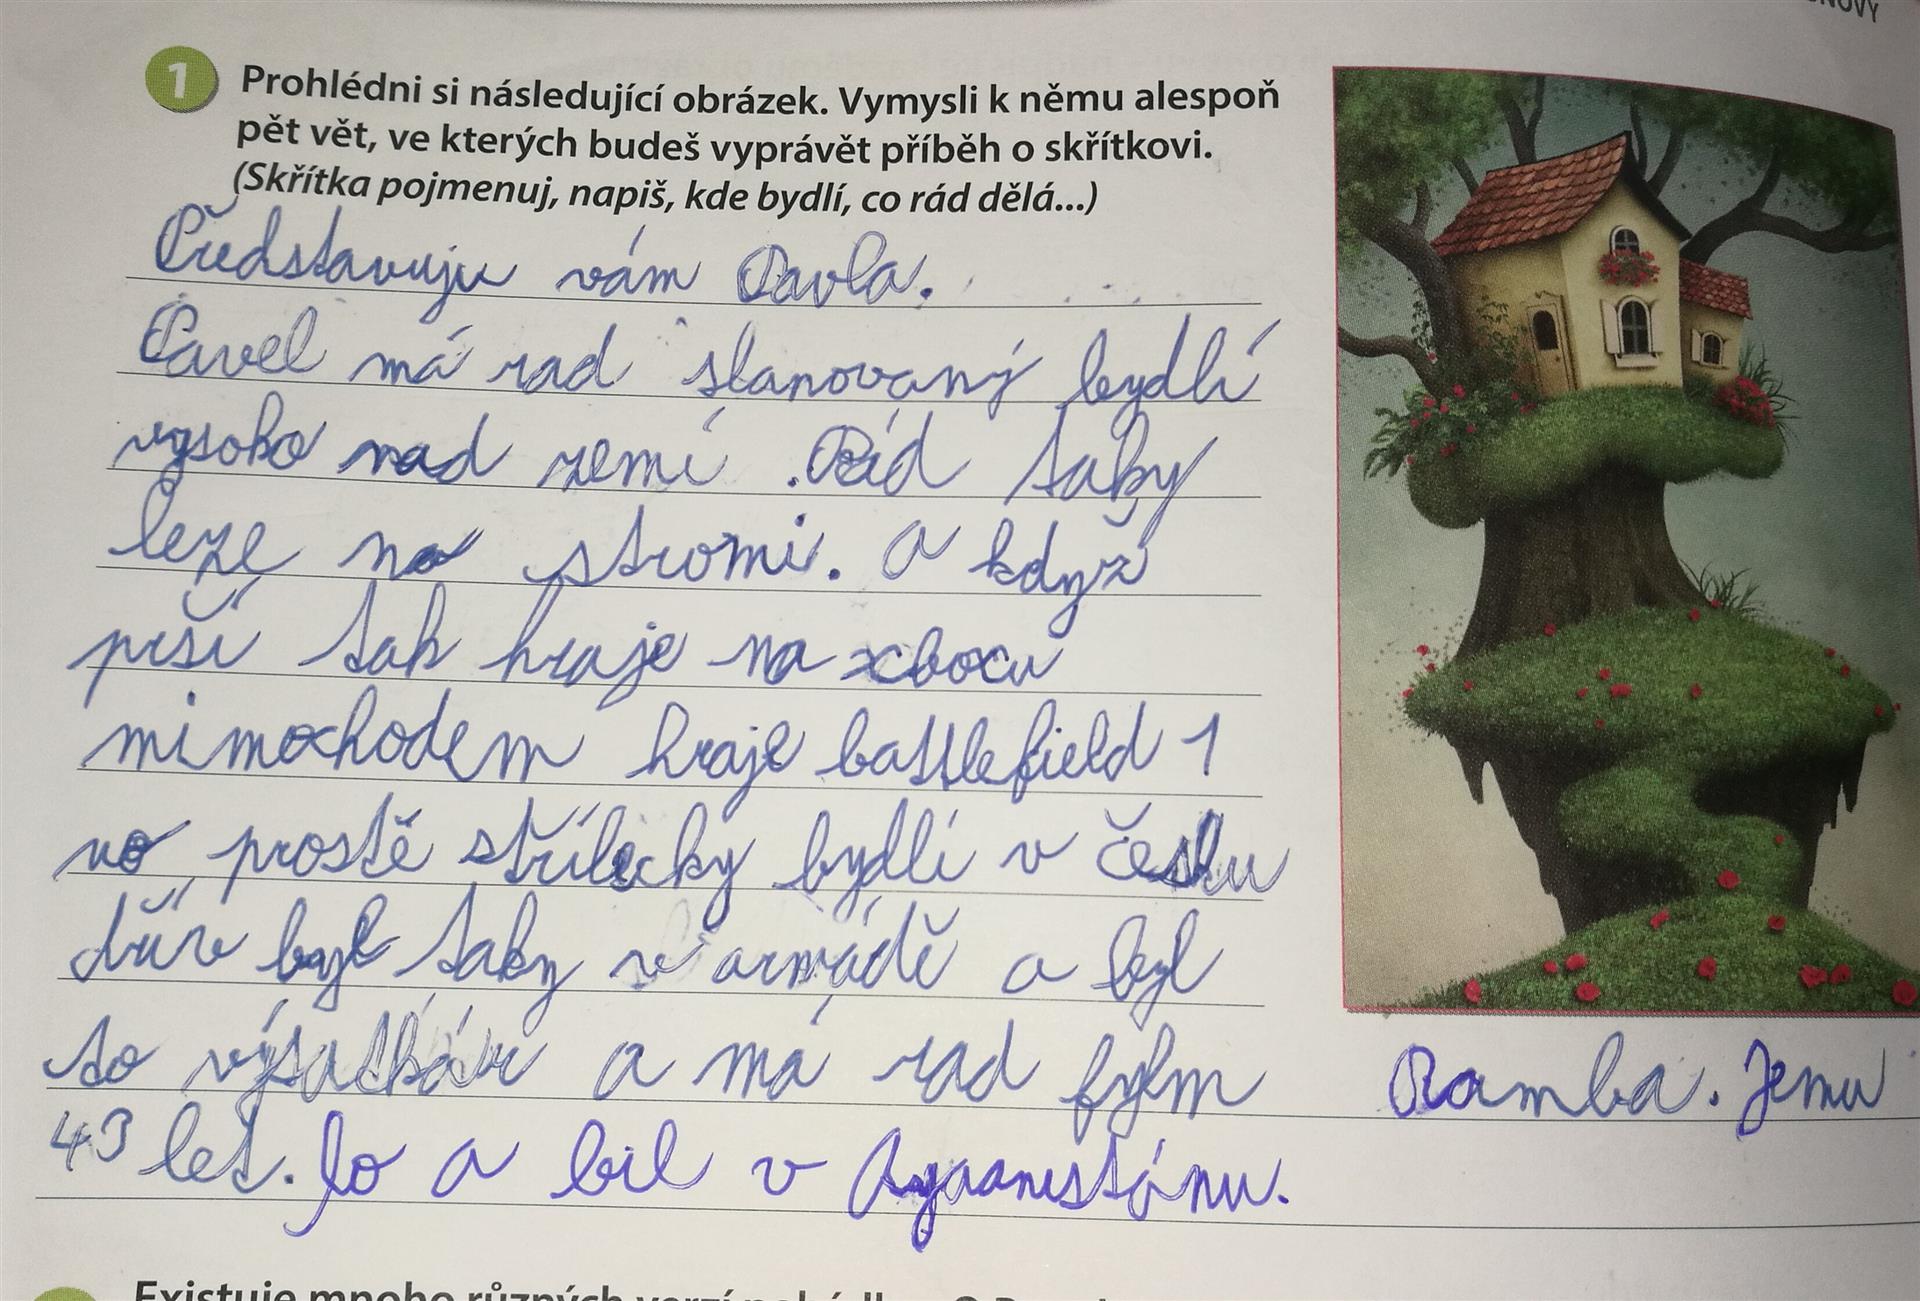 1 Prohlédni si následující obrázek. Vymysli k němu alespoň
pět vět, ve kterých budeš vyprávět příběh o skřítkovi.
(Skřítka pojmenuj, napiš, kde bydlí, co rád dělá...)
Představuju vám Pavla.
Pavel má rad slanovaný bydlí
vysoko nad zemí. Rád taky
leze na stromi. A když
prší tak hraje na xboxu
mimochodem hraje battlefield 1
no prostě střílečky bydlí v česku
dřív byl taky v armádě a byl
to výsatkář a má rad fylm Ramba. Jemu
43 let. Jo a bil v